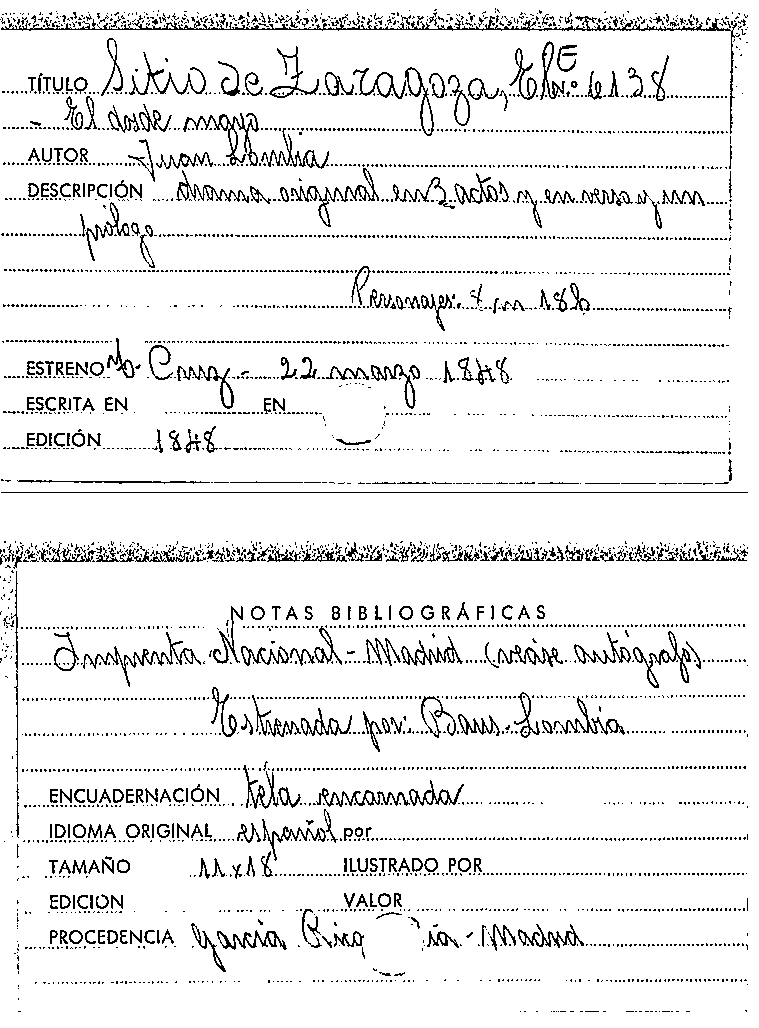 TÍTULO Sitio de Zaragoza, El E
Nº: 6138
- El dos de mayo
AUTOR - Juan Lombía
DESCRIPCIÓN drama original en 3 actos y en verso y un
prólogo
Personajes: 8 m 18h
ESTRENO Cruz - 22 marzo 1848
ESCRITA EN EN
EDICIÓN 1848
NOTAS BIBLIOGRÁFICAS
Imprenta Nacional - Madrid (veáse autógrafo)
Estrenada por: Baus - Lombía
ENCUADERNACIÓN tela encarnada
IDIOMA ORIGINAL español por
TAMAÑO 11 x 18 ILUSTRADO POR
EDICION VALOR
PROCEDENCIA García Rico ía - Madrid